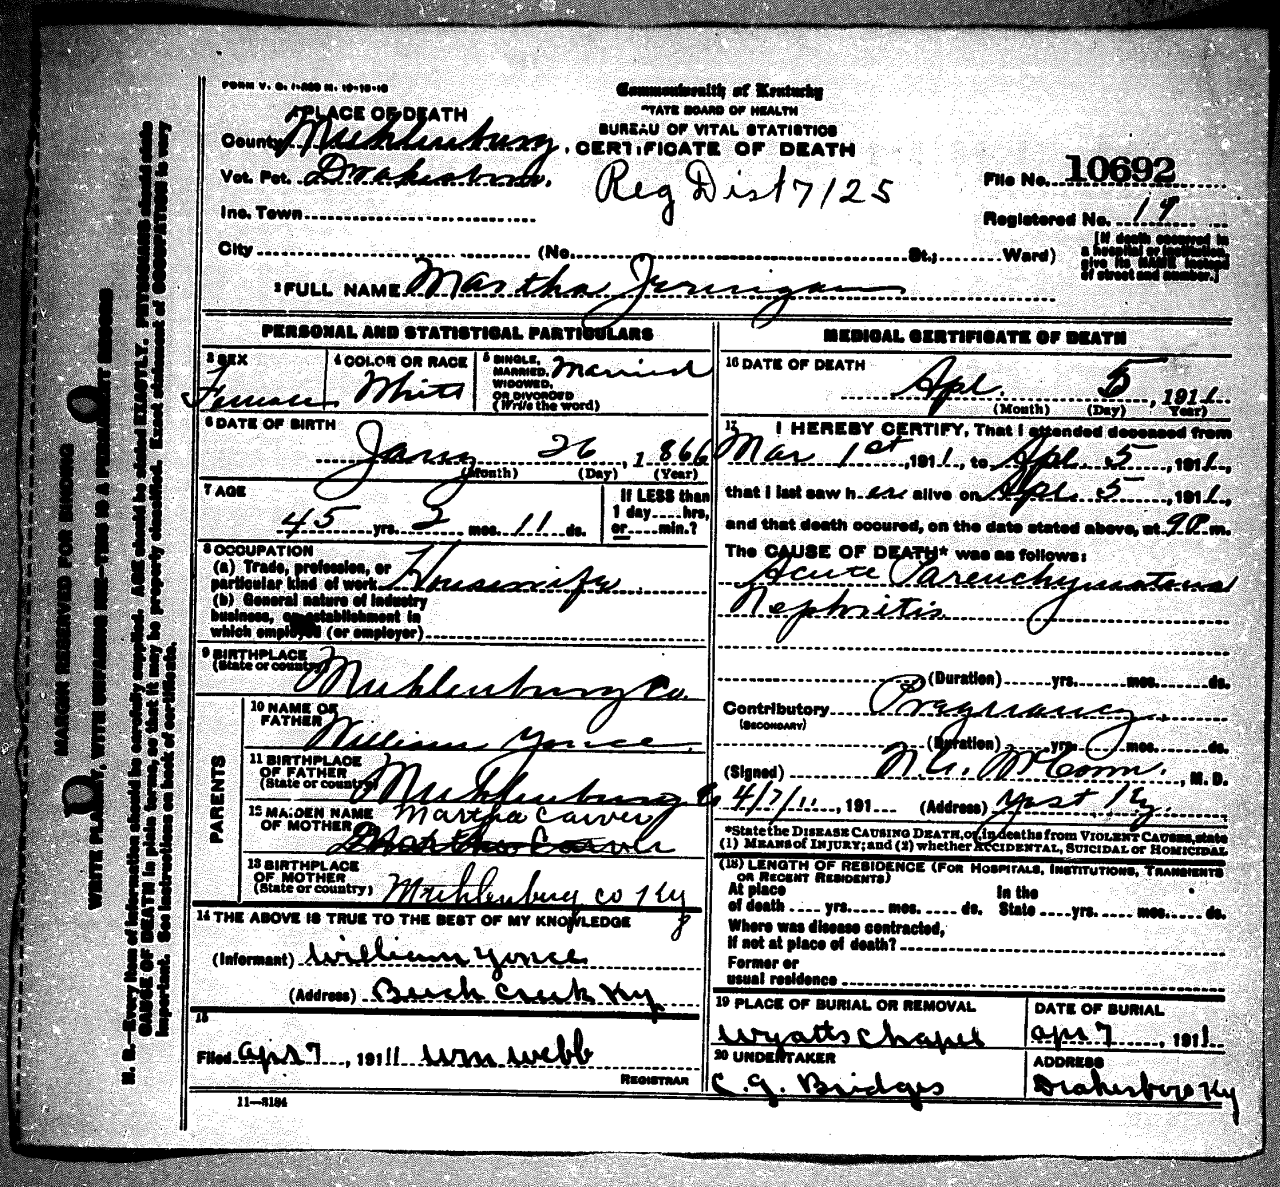 FORM V. S. 1-500 M. 10-18-10
Commonwealth of Kentucky
STATE BOARD OF HEALTH
BUREAU OF VITAL STATISTICS
CERTIFICATE OF DEATH
1 PLACE OF DEATH
County Muhlenburg
Vot. Pct. Drakesboro.
Inc. Town
City (No. St.; Ward)
Reg Dist 7125
File No. 10692
Registered No. 19
[If death occurred in a hospital or institution, give its NAME instead of street and number.]
2 FULL NAME Martha Jerningan
PERSONAL AND STATISTICAL PARTICULARS
3 SEX Female
4 COLOR OR RACE White
5 SINGLE, MARRIED, WIDOWED, OR DIVORCED (Write the word) Married
6 DATE OF BIRTH
Jany 26, 1866
(Month) (Day) (Year)
7 AGE
45 yrs. 2 mos. 11 ds.
If LESS than 1 day hrs, or min.?
8 OCCUPATION
(a) Trade, profession, or
particular kind of work Housewife
(b) General nature of industry
business, or establishment in
which employed (or employer)
9 BIRTHPLACE
(State or country) Muhlenburg Co.
PARENTS
10 NAME OF FATHER William Yonce
11 BIRTHPLACE OF FATHER (State or country) Muhlenburg Co
12 MAIDEN NAME OF MOTHER Martha Carver
Martha Carver
13 BIRTHPLACE OF MOTHER (State or country) Muhlenburg co Ky
14 THE ABOVE IS TRUE TO THE BEST OF MY KNOWLEDGE
(Informant) William Yonce
(Address) Beech Creek Ky
15
Filed apr 7, 1911 Wm Webb
REGISTRAR
11—3184
MEDICAL CERTIFICATE OF DEATH
16 DATE OF DEATH
Apl. 5, 1911
(Month) (Day) (Year)
17 I HEREBY CERTIFY, That I attended deceased from
Mar 1st, 1911, to Apl. 5, 1911,
that I last saw her alive on Apl. 5, 1911,
and that death occured, on the date stated above, at 9 P m.
The CAUSE OF DEATH* was as follows:
Acute Parenchymatous
Nephritis
(Duration) yrs. mos. ds.
Contributory Pregnancy.
(SECONDARY)
(Duration) yrs. mos. ds.
(Signed) , M. D.
4/7/11, 191 (Address) Yost Ky.
*State the DISEASE CAUSING DEATH, or, in deaths from VIOLENT CAUSES, state
(1) MEANS of INJURY; and (2) whether ACCIDENTAL, SUICIDAL or HOMICIDAL
(18) LENGTH OF RESIDENCE (FOR HOSPITALS, INSTITUTIONS, TRANSIENTS
OR RECENT RESIDENTS)
At place of death yrs. mos. ds. In the State yrs. mos. ds.
Where was disease contracted,
If not at place of death?
Former or
usual residence
19 PLACE OF BURIAL OR REMOVAL
Wyatts Chapel
DATE OF BURIAL
apr 7, 1911
20 UNDERTAKER
C. G. Bridges
ADDRESS
Drakesboro Ky
MARGIN RESERVED FOR BINDING
WRITE PLAINLY, WITH UNFADING INK—THIS IS A PERMANENT RECORD
N. B.—Every item of information should be carefully supplied. AGE should be stated EXACTLY. PHYSICIANS should state
CAUSE OF DEATH in plain terms, so that it may be properly classified. Exact statement of OCCUPATION is very
important. See instructions on back of certificate.